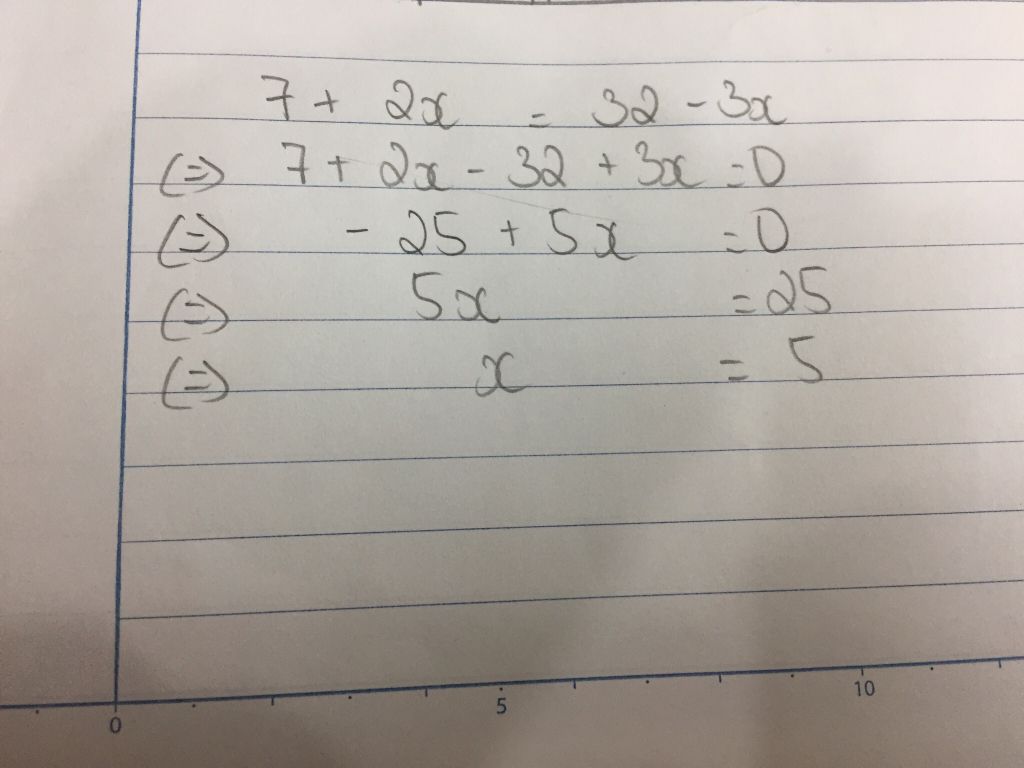 7 + 2x = 32 - 3x
(=) 7 + 2x - 32 + 3x = 0
(=) - 25 + 5x = 0
(=) 5x = 25
(=) x = 5
0 5 10